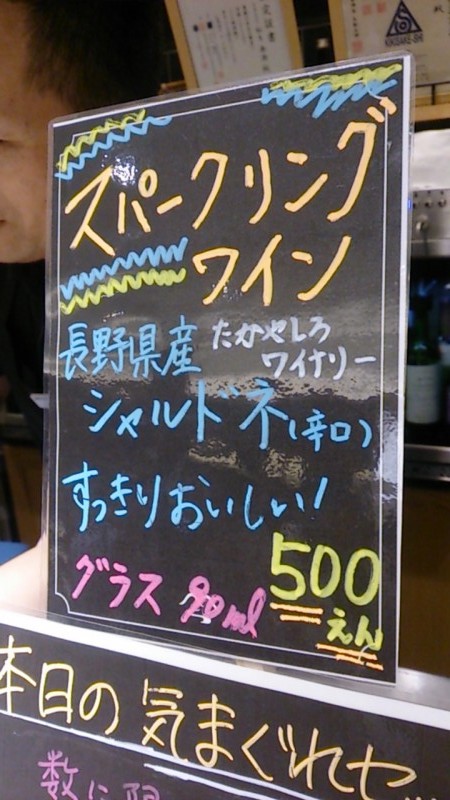 認定証書
KIKISAKE-SHI
スパークリング
ワイン
長野県産 たかやしろ
ワイナリー
シャルドネ(辛口)
すっきりおいしい!
グラス 90ml 500
えん
本日の気まぐれセ
数に限